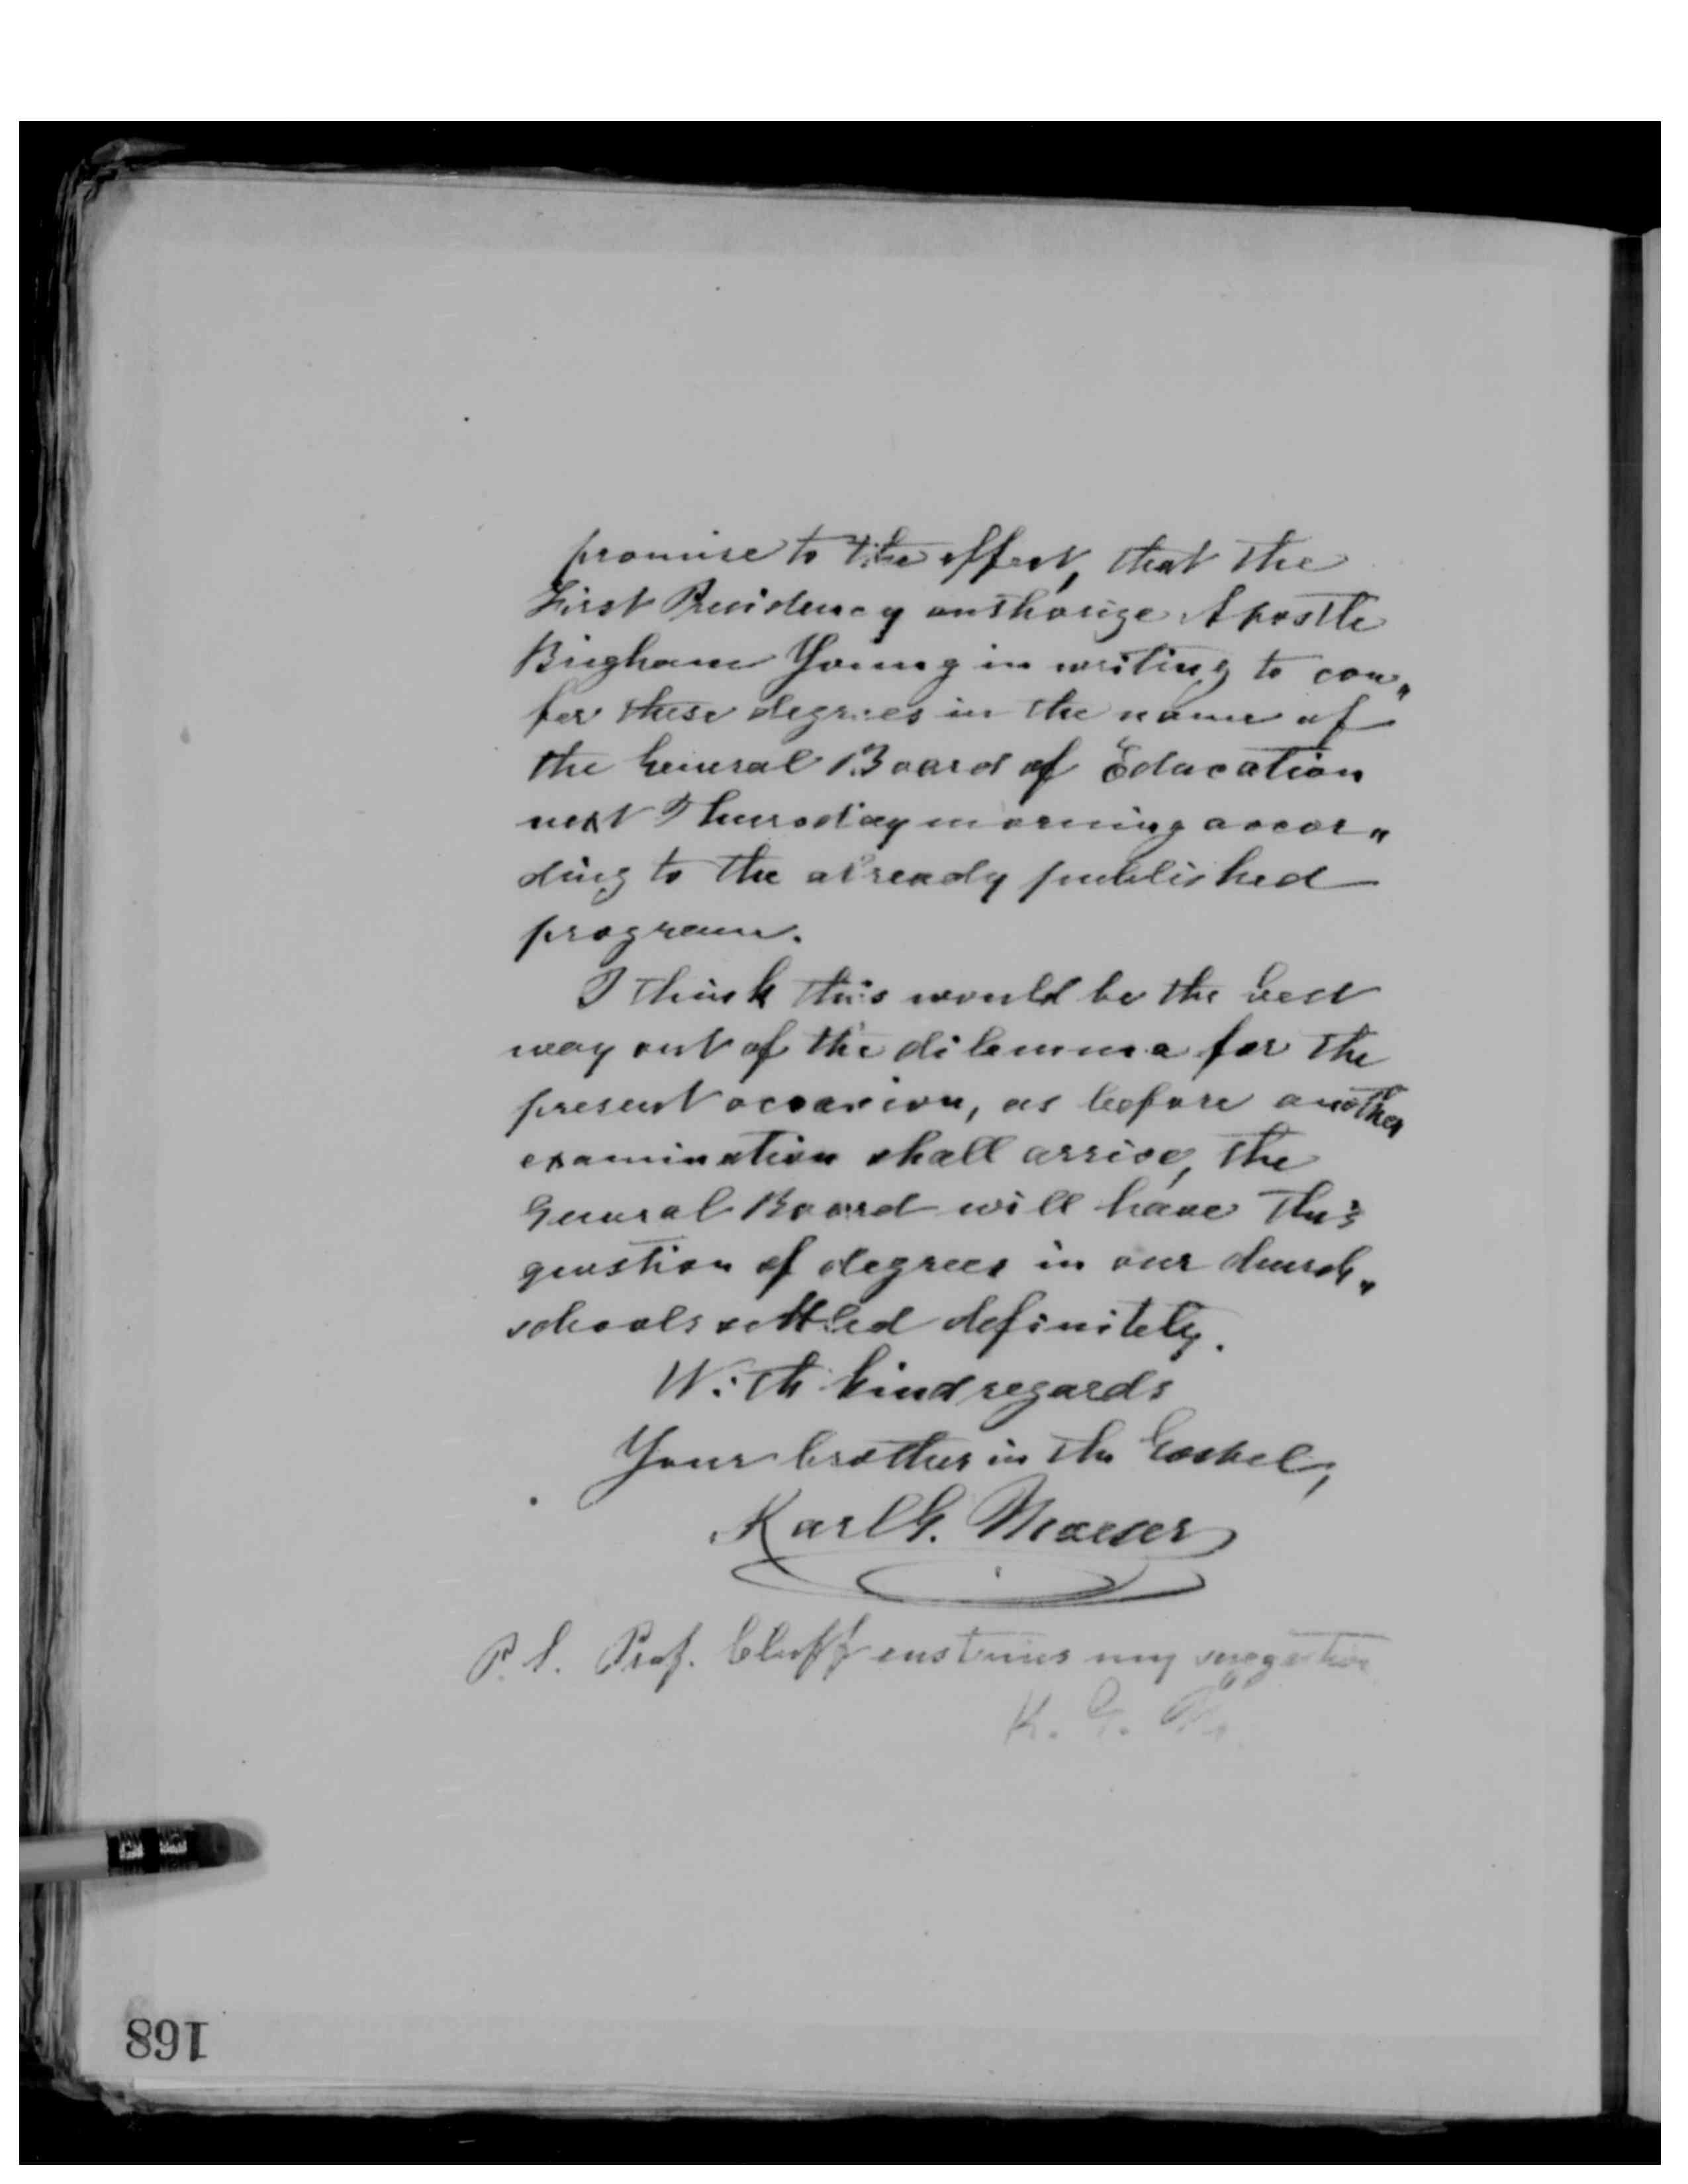 promise to the effect, that the
First Presidency authorize Apostle
Brigham Young in writing to con„
fer these degrees in the name of
the General Board of Education
next Thursday morning accor„
ding to the already published
program.
I think this would be the best
way out of the dilemma for the
present occasion, as before another
examination shall arrive, the
General Board will have this
question of degrees in our church„
schools settled definitely.
With kind regards
Your brother in the Gospel,
Karl G. Maeser
P. S. Prof. Cluff my suggestion
K. G. M.
168